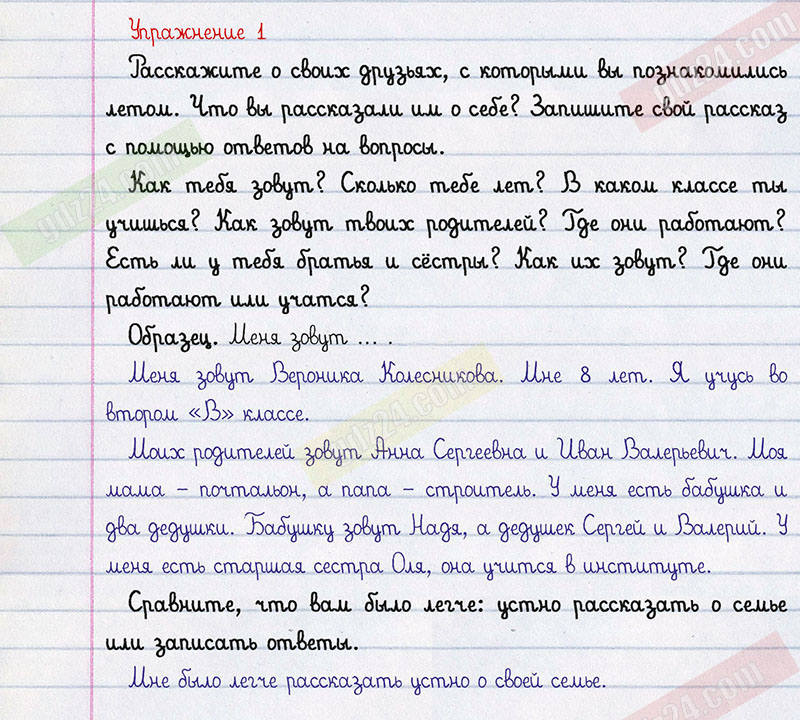 Упражнение 1
Расскажите о своих друзьях, с которыми вы познакомились
летом. Что вы рассказали им о себе? Запишите свой рассказ
с помощью ответов на вопросы.
Как тебя зовут? Сколько тебе лет? В каком классе ты
учишься? Как зовут твоих родителей? Где они работают?
Есть ли у тебя братья и сёстры? Как их зовут? Где они
работают или учатся?
Образец. Меня зовут ... .
Меня зовут Вероника Колесникова. Мне 8 лет. Я учусь во
втором «В» классе.
Моих родителей зовут Анна Сергеевна и Иван Валерьевич. Моя
мама – почтальон, а папа – строитель. У меня есть бабушка и
два дедушки. Бабушку зовут Надя, а дедушек Сергей и Валерий. У
меня есть старшая сестра Оля, она учится в институте.
Сравните, что вам было легче: устно рассказать о семье
или записать ответы.
Мне было легче рассказать устно о своей семье.
gdz24.com
gdz24.com
gdz24.com
gdz24.com